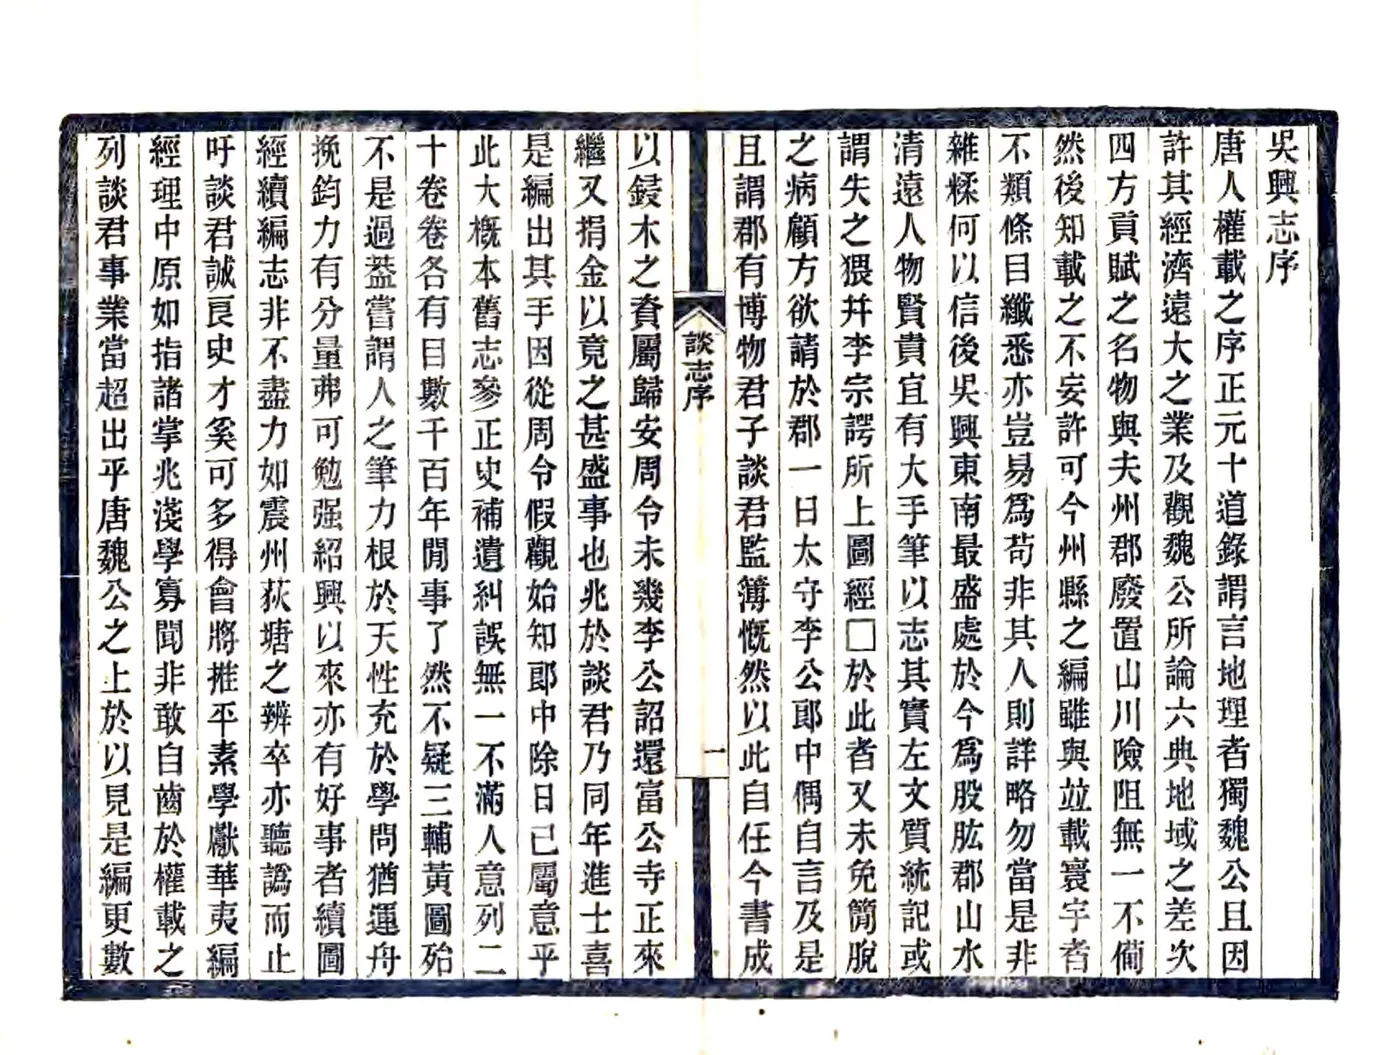 吳興志序
唐人權載之序正元十道錄謂言地理者獨魏公且因
許其經濟遠大之業及觀魏公所論六典地域之差次
四方貢賦之名物與夫州郡廢置山川險阻無一不僃
然後知載之不妄許可今州縣之編雖與竝載寰宇者
不類條目纖悉亦豈易爲苟非其人則詳略勿當是非
雜糅何以信後吳興東南最盛處於今爲股肱郡山水
清遠人物賢貴宜有大手筆以志其實左文質統記或
謂失之猥幷李宗諤所上圖經□於此者又未免簡脫
之病顧方欲請於郡一日太守李公郎中偶自言及是
且謂郡有博物君子談君監簿慨然以此自任今書成
以鋟木之資屬歸安周令未幾李公詔還富公寺正來
繼又捐金以竟之甚盛事也兆於談君乃同年進士喜
是編出其手因從周令假觀始知郎中除日已屬意乎
此大槪本舊志參正史補遺糾誤無一不滿人意列二
十卷卷各有目數千百年閒事了然不疑三輔黃圖殆
不是過葢嘗謂人之筆力根於天性充於學問猶運舟
挽鈞力有分量弗可勉强紹興以來亦有好事者續圖
經續編志非不盡力如震州荻塘之辨卒亦聽譌而止
吁談君誠良史才奚可多得會將推平素學獻華夷編
經理中原如指諸掌兆淺學寡聞非敢自齒於權載之
列談君事業當超出乎唐魏公之上於以見是編更數
談志序
一